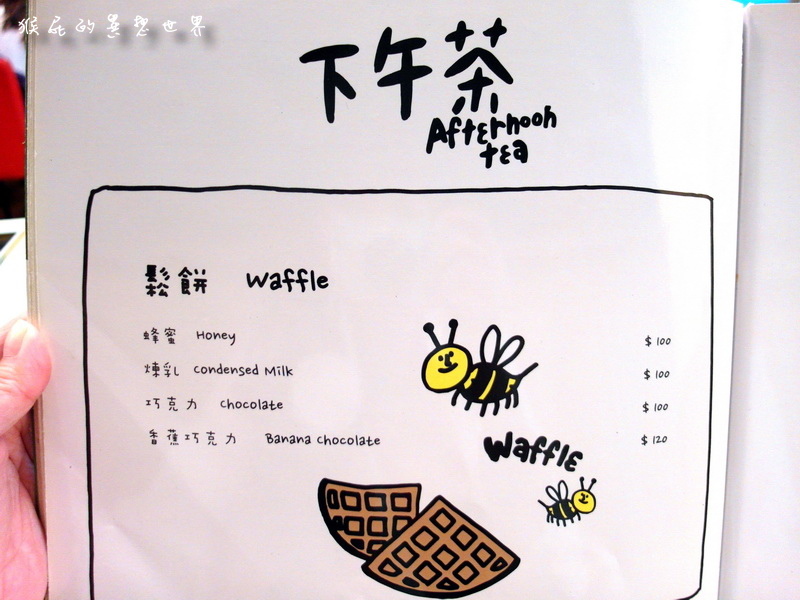 猴屁的異想世界
下午茶
Afternoon
tea
鬆餅 Waffle
蜂蜜 Honey $100
煉乳 Condensed Milk $100
巧克力 Chocolate $100
香蕉巧克力 Banana chocolate $120
Waffle